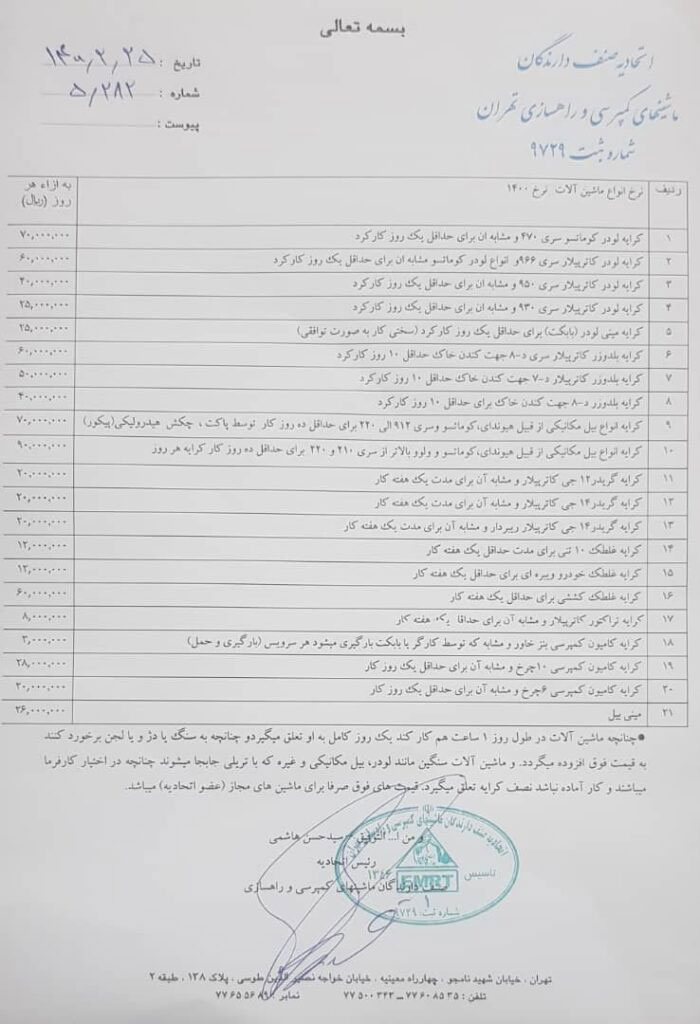 بسمه تعالی
اتحادیه صنف دارندگان
ماشینهای کمپرسی و راهسازی تهران
شماره ثبت ۹۷۲۹
تاریخ : ۱۴۰۰,۲,۲۵
شماره : ۵,۲۸۲
پیوست :
ردیف نرخ انواع ماشین آلات نرخ ۱۴۰۰ به ازاء هر روز (ریال)
۱ کرایه لودر کوماتسو سری ۴۷۰ و مشابه ان برای حداقل یک روز کارکرد ۷۰,۰۰۰,۰۰۰
۲ کرایه لودر کاترپیلار سری ۹۶۶و انواع لودر کوماتسو مشابه ان برای حداقل یک روز کارکرد ۶۰,۰۰۰,۰۰۰
۳ کرایه لودر کاترپیلار سری ۹۵۰ و مشابه ان برای حداقل یک روز کارکرد ۴۰,۰۰۰,۰۰۰
۴ کرایه لودر کاترپیلار سری ۹۳۰ و مشابه ان برای حداقل یک روز کارکرد ۲۵,۰۰۰,۰۰۰
۵ کرایه مینی لودر (بابکت) برای حداقل یک روز کارکرد (سختی کار به صورت توافقی) ۲۵,۰۰۰,۰۰۰
۶ کرایه بلدوزر کاترپیلار سری د-۸ جهت کندن خاک حداقل ۱۰ روز کارکرد ۶۰,۰۰۰,۰۰۰
۷ کرایه بلدوزر کاترپیلار د-۷ جهت کندن خاک حداقل ۱۰ روز کارکرد ۵۰,۰۰۰,۰۰۰
۸ کرایه بلدوزر د-۸ جهت کندن خاک برای حداقل ۱۰ روز کارکرد ۴۰,۰۰۰,۰۰۰
۹ کرایه انواع بیل مکانیکی از قبیل هیوندای،کوماتسو وسری ۹۱۲ الی ۲۲۰ برای حداقل ده روز کار توسط پاکت ، چکش هیدرولیکی(پیکور) ۷۰,۰۰۰,۰۰۰
۱۰ کرایه انواع بیل مکانیکی از قبیل هیوندای،کوماتسو و ولوو بالاتر از سری ۲۱۰ و ۲۲۰ برای حداقل ده روز کار کرایه هر روز ۹۰,۰۰۰,۰۰۰
۱۱ کرایه گریدر۱۲ جی کاترپیلار و مشابه آن برای مدت یک هفته کار ۲۰,۰۰۰,۰۰۰
۱۲ کرایه گریدر۱۴ جی کاترپیلار و مشابه آن برای مدت یک هفته کار ۲۰,۰۰۰,۰۰۰
۱۳ کرایه گریدر۱۴ جی کاترپیلار ریپردار و مشابه آن برای مدت یک هفته کار ۲۰,۰۰۰,۰۰۰
۱۴ کرایه غلطک ۱۰ تنی برای مدت حداقل یک هفته کار ۱۲,۰۰۰,۰۰۰
۱۵ کرایه غلطک خودرو ویبره ای برای حداقل یک هفته کار ۱۲,۰۰۰,۰۰۰
۱۶ کرایه غلطک کششی برای حداقل یک هفته کار ۶۰,۰۰۰,۰۰۰
۱۷ کرایه تراکتور کاترپیلار و مشابه آن برای حداقل یک هفته کار ۸,۰۰۰,۰۰۰
۱۸ کرایه کامیون کمپرسی بنز خاور و مشابه که توسط کارگر یا بابکت بارگیری میشود هر سرویس (بارگیری و حمل) ۳,۰۰۰,۰۰۰
۱۹ کرایه کامیون کمپرسی ۱۰چرخ و مشابه آن برای حداقل یک روز کار ۲۸,۰۰۰,۰۰۰
۲۰ کرایه کامیون کمپرسی ۶چرخ و مشابه آن برای حداقل یک روز کار ۲۰,۰۰۰,۰۰۰
۲۱ مینی بیل ۳۶,۰۰۰,۰۰۰
●چنانچه ماشین آلات در طول روز ۱ ساعت هم کار کند یک روز کامل به او تعلق میگیردو چنانچه به سنگ یا دژ و یا لجن برخورد کنند
به قیمت فوق افزوده میگردد. و ماشین آلات سنگین مانند لودر، بیل مکانیکی و غیره که با تریلی جابجا میشوند چنانچه در اختیار کارفرما
میباشند و کار آماده نباشد نصف کرایه تعلق میگیرد. قیمت های فوق صرفا برای ماشین های مجاز (عضو اتحادیه) میباشد.
و من ا... التوفیق - سیدحسن هاشمی
رئیس اتحادیه
صنف دارندگان ماشینهای کمپرسی و راهسازی
تاسیس ۱۳۵۶
EMRT
۱
شماره ثبت: ۹۷۲۹
تهران ، خیابان شهید نامجو ، چهارراه معینیه ، خیابان خواجه نصیر الدین طوسی ، پلاک ۱۳۸ ، طبقه ۲
تلفن : ۷۷۶۰۸۵۳۵ – ۷۷۵۰۰۳۴۳ نمابر : ۷۷۶۵۵۶۸۹